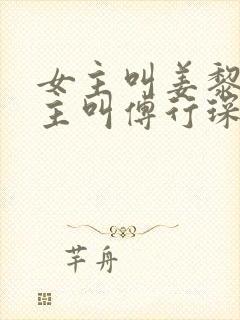 女主叫姜黎
主叫傅行琛
芊舟